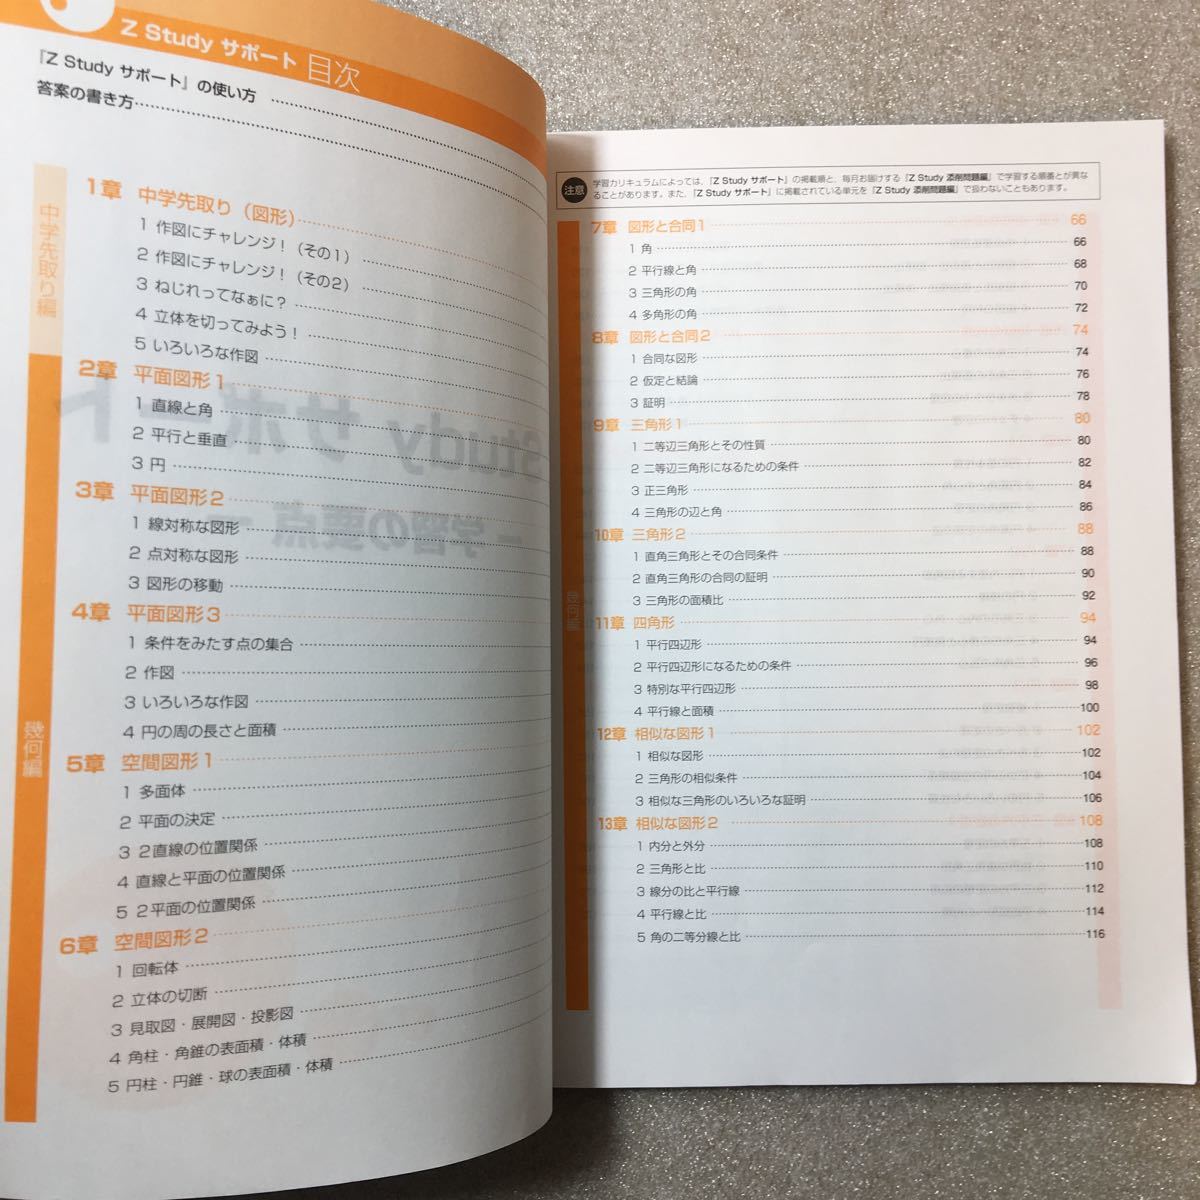 Z Study サポート 目次
『Z Study サポート』の使い方
答案の書き方
中学先取り編
1章 中学先取り(図形)
1 作図にチャレンジ!(その1)
2 作図にチャレンジ!(その2)
3 ねじれってなぁに?
4 立体を切ってみよう!
5 いろいろな作図
幾何編
2章 平面図形1
1 直線と角
2 平行と垂直
3 円
3章 平面図形2
1 線対称な図形
2 点対称な図形
3 図形の移動
4章 平面図形3
1 条件をみたす点の集合
2 作図
3 いろいろな作図
4 円の周の長さと面積
5章 空間図形1
1 多面体
2 平面の決定
3 2直線の位置関係
4 直線と平面の位置関係
5 2平面の位置関係
6章 空間図形2
1 回転体
2 立体の切断
3 見取図・展開図・投影図
4 角柱・角錐の表面積・体積
5 円柱・円錐・球の表面積・体積
注意 学習カリキュラムによっては、『Z Study サポート』の掲載順と、毎月お届けする『Z Study 添削問題編』で学習する順番とが異な
ることがあります。また、『Z Study サポート』に掲載されている単元を『Z Study 添削問題編』で扱わないこともあります。
幾何編
7章 図形と合同1 66
1 角 66
2 平行線と角 68
3 三角形の角 70
4 多角形の角 72
8章 図形と合同2 74
1 合同な図形 74
2 仮定と結論 76
3 証明 78
9章 三角形1 80
1 二等辺三角形とその性質 80
2 二等辺三角形になるための条件 82
3 正三角形 84
4 三角形の辺と角 86
10章 三角形2 88
1 直角三角形とその合同条件 88
2 直角三角形の合同の証明 90
3 三角形の面積比 92
11章 四角形 94
1 平行四辺形 94
2 平行四辺形になるための条件 96
3 特別な平行四辺形 98
4 平行線と面積 100
12章 相似な図形1 102
1 相似な図形 102
2 三角形の相似条件 104
3 相似な三角形のいろいろな証明 106
13章 相似な図形2 108
1 内分と外分 108
2 三角形と比 110
3 線分の比と平行線 112
4 平行線と比 114
5 角の二等分線と比 116